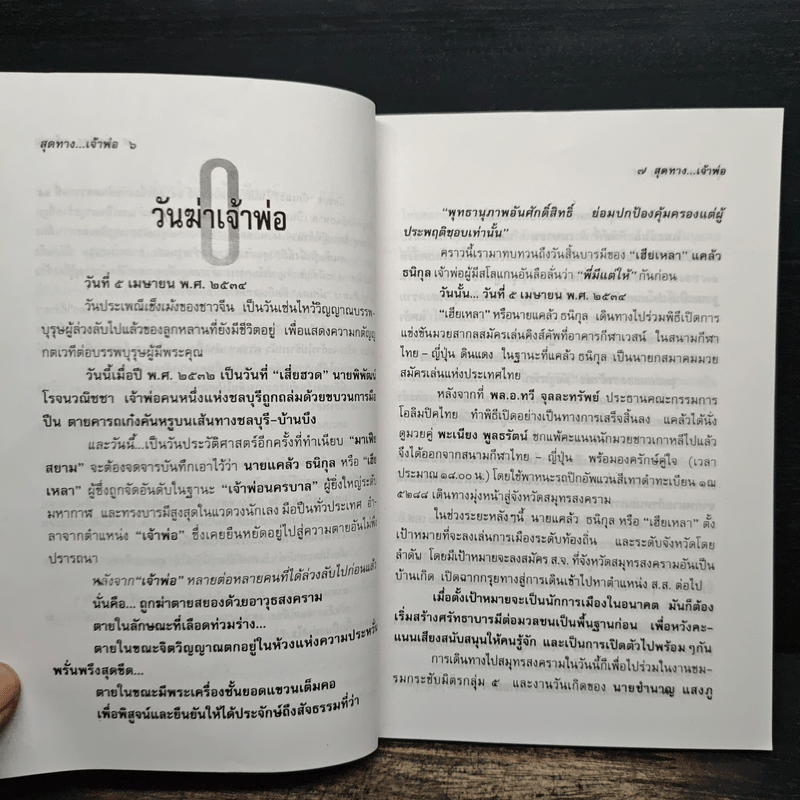 สุดทาง...เจ้าพ่อ ๖
0
วันฆ่าเจ้าพ่อ
วันที่ ๕ เมษายน พ.ศ. ๒๕๓๔
วันประเพณีเช็งเม้งของชาวจีน เป็นวันเซ่นไหว้วิญญาณบรรพ-
บุรุษผู้ล่วงลับไปแล้วของลูกหลานที่ยังมีชีวิตอยู่ เพื่อแสดงความกตัญญู
กตเวทีต่อบรรพบุรุษผู้มีพระคุณ
วันนี้เมื่อปี พ.ศ. ๒๕๓๒ เป็นวันที่ “เสี่ยฮวด” นายพิพัฒน์
โรจนวณิชชา เจ้าพ่อคนหนึ่งแห่งชลบุรีถูกถล่มด้วยขบวนการมือ
ปืน ตายคารถเก๋งคันหรูบนเส้นทางชลบุรี–บ้านบึง
และวันนี้...เป็นวันประวัติศาสตร์อีกครั้งที่ทำเนียบ “มาเฟีย
สยาม” จะต้องจดจารบันทึกเอาไว้ว่า นายแคล้ว ธนิกุล หรือ “เฮีย
เหลา” ผู้ซึ่งถูกจัดอันดับในฐานะ “เจ้าพ่อนครบาล” ผู้ยิ่งใหญ่ระดับ
มหากาฬ และทรงบารมีสูงสุดในแวดวงนักเลง มือปืนทั่วประเทศ อำ-
ลาจากตำแหน่ง “เจ้าพ่อ” ซึ่งเคยยืนหยัดอยู่ไปสู่ความตายอันไม่พึง
ปรารถนา
หลังจาก“เจ้าพ่อ” หลายต่อหลายคนที่ได้ล่วงลับไปก่อนแล้ว
นั่นคือ... ถูกฆ่าตายสยองด้วยอาวุธสงคราม
ตายในลักษณะที่เลือดท่วมร่าง...
ตายในขณะจิตวิญญาณตกอยู่ในห้วงแห่งความประหวั่น
พรั่นพรึงสุดขีด...
ตายในขณะมีพระเครื่องชั้นยอดแขวนเต็มคอ
เพื่อพิสูจน์และยืนยันให้ได้ประจักษ์ถึงสัจธรรมที่ว่า
๗ สุดทาง...เจ้าพ่อ
“พุทธานุภาพอันศักดิ์สิทธิ์ ย่อมปกป้องคุ้มครองแต่ผู้
ประพฤติชอบเท่านั้น”
คราวนี้เรามาทบทวนถึงวันสิ้นบารมีของ “เฮียเหลา” แคล้ว
ธนิกุล เจ้าพ่อผู้มีสโลแกนอันลือลั่นว่า “พี่มีแต่ให้” กันก่อน
วันนั้น... วันที่ ๕ เมษายน พ.ศ. ๒๕๓๔
“เฮียเหลา” หรือนายแคล้ว ธนิกุล เดินทางไปร่วมพิธีเปิดการ
แข่งขันมวยสากลสมัครเล่นคิงส์คัพที่อาคารกีฬาเวสน์ ในสนามกีฬา
ไทย – ญี่ปุ่น ดินแดง ในฐานะที่แคล้ว ธนิกุล เป็นนายกสมาคมมวย
สมัครเล่นแห่งประเทศไทย
หลังจากที่ พล.อ.ทวี จุลละทรัพย์ ประธานคณะกรรมการ
โอลิมปิคไทย ทำพิธีเปิดอย่างเป็นทางการเสร็จสิ้นลง แคล้วได้นั่ง
ดูมวยคู่ พะเนียง พูลธรัตน์ ชกแพ้คะแนนนักมวยชาวเกาหลีไปแล้ว
จึงได้ออกจากสนามกีฬาไทย – ญี่ปุ่น พร้อมองครักษ์คู่ใจ (เวลา
ประมาณ ๑๘.๐๐ น.) โดยใช้พาหนะรถปิกอัพแวนสีเทาดำทะเบียน ๑ณ
๕๒๘๘ เดินทางมุ่งหน้าสู่จังหวัดสมุทรสงคราม
ในช่วงระยะหลังๆนี้ นายแคล้ว ธนิกุล หรือ “เฮียเหลา” ตั้ง
เป้าหมายที่จะลงเล่นการเมืองระดับท้องถิ่น และระดับจังหวัดโดย
ลำดับ โดยมีเป้าหมายจะลงสมัคร ส.จ. ที่จังหวัดสมุทรสงครามอันเป็น
บ้านเกิด เปิดฉากกรุยทางสู่การเดินเข้าไปหาตำแหน่ง ส.ส. ต่อไป
เมื่อตั้งเป้าหมายจะเป็นนักการเมืองในอนาคต มันก็ต้อง
เริ่มสร้างศรัทธาบารมีต่อมวลชนเป็นพื้นฐานก่อน เพื่อหวังคะ-
แนนเสียงสนับสนุนให้คนรู้จัก และเป็นการเปิดตัวไปพร้อมๆกัน
การเดินทางไปสมุทรสงครามในวันนี้ก็เพื่อไปร่วมในงานชม-
รมกระชับมิตรกลุ่ม ๕ และงานวันเกิดของ นายชำนาญ แสงภู